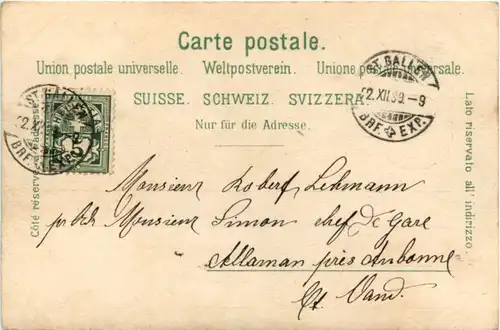 Carte postale.
Union postale universelle. Weltpostverein. Unione postale universale.
SUISSE. SCHWEIZ. SVIZZERA.
Nur für die Adresse.
Côté réservé à l'adresse.
Lato riservato all' indirizzo.
ST. GALLEN
2.XII.99.-9
BRF. EXP.
Monsieur Robert Lehmann
Monsieur Simon chef De Gare
Allaman près Aubonne
Ct. Vaud.